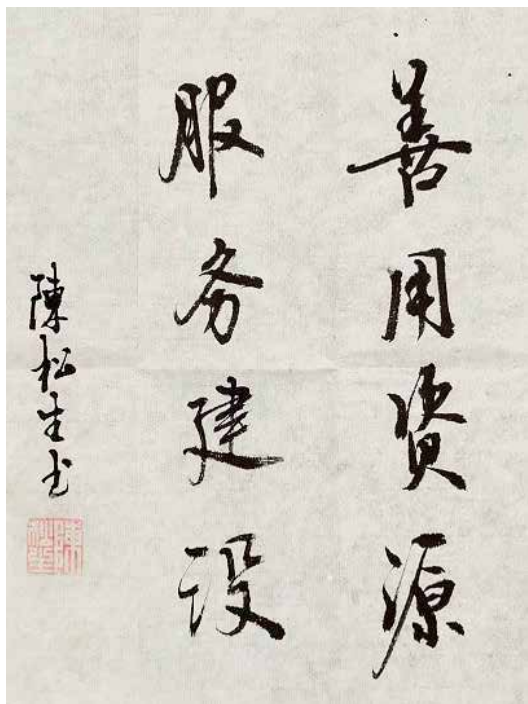 善用资源
服务建设
陳松生书
陳松生